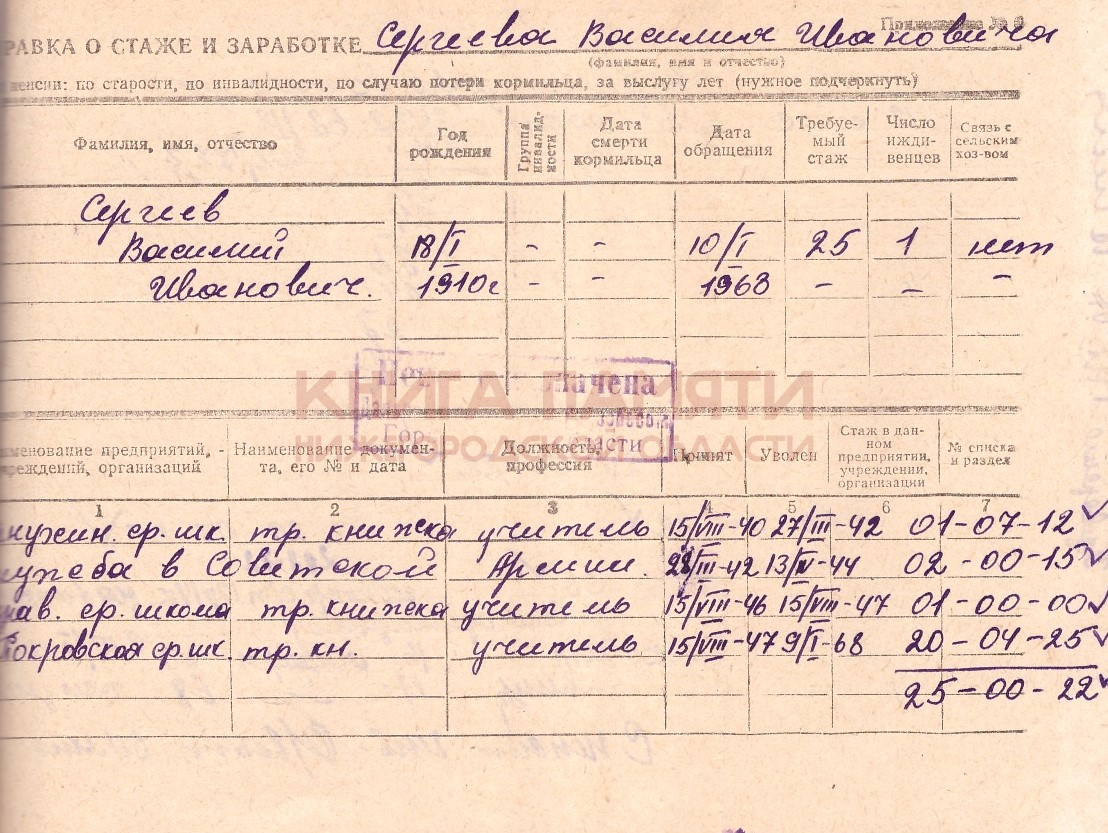 Приложение №
РАВКА О СТАЖЕ И ЗАРАБОТКЕ Сергеева Василия Ивановича
(фамилия, имя и отчество)
пенсии: по старости, по инвалидности, по случаю потери кормильца, за выслугу лет (нужное подчеркнуть)
Фамилия, имя, отчество
Год рождения
Группа инвалид-ности
Дата смерти кормильца
Дата обращения
Требуе-мый стаж
Число ижди-венцев
Связь с сельским хоз-вом
Сергеев
Василий 18/I - - 10/I 25 1 нет
Иванович. 1910г - - 1968 - - -
начена
КНИГА ПАМЯТИ
НИЖЕГОРОДСКОЙ ОБЛАСТИ
Бор
ласти
именование предприятий, -
реждений, организаций
Наименование докумен-
та, его № и дата
Должность,
профессия
Принят
Уволен
Стаж в дан-
ном
предприятии,
учреждении,
организации
№ списка
и раздел
1 2 3 4 5 6 7
ср. шк. тр. книжка учитель 15/VIII-40 27/III-42 01-07-12
ужба в Советской Армии. 28/III-42 44 02-00-15
ав. ср. школа тр. книжка учитель 15/VIII-46 15/VIII-47 01-00-00
Покровская ср. шк. тр. кн. учитель 15/VIII-47 9/I-68 20-04-25
25-00-22